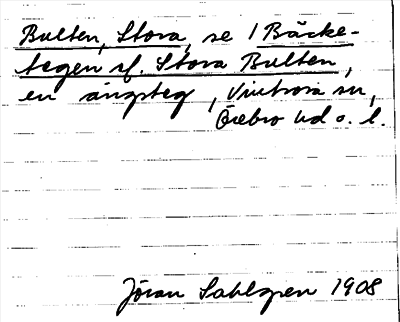 Bulten, Stora, se 1 Bäcke-
tegen sf. Stora Bulten,
en ängsteg, Vintrosa sn,
Örebro hd o. l.
Jöran Sahlgren 1908